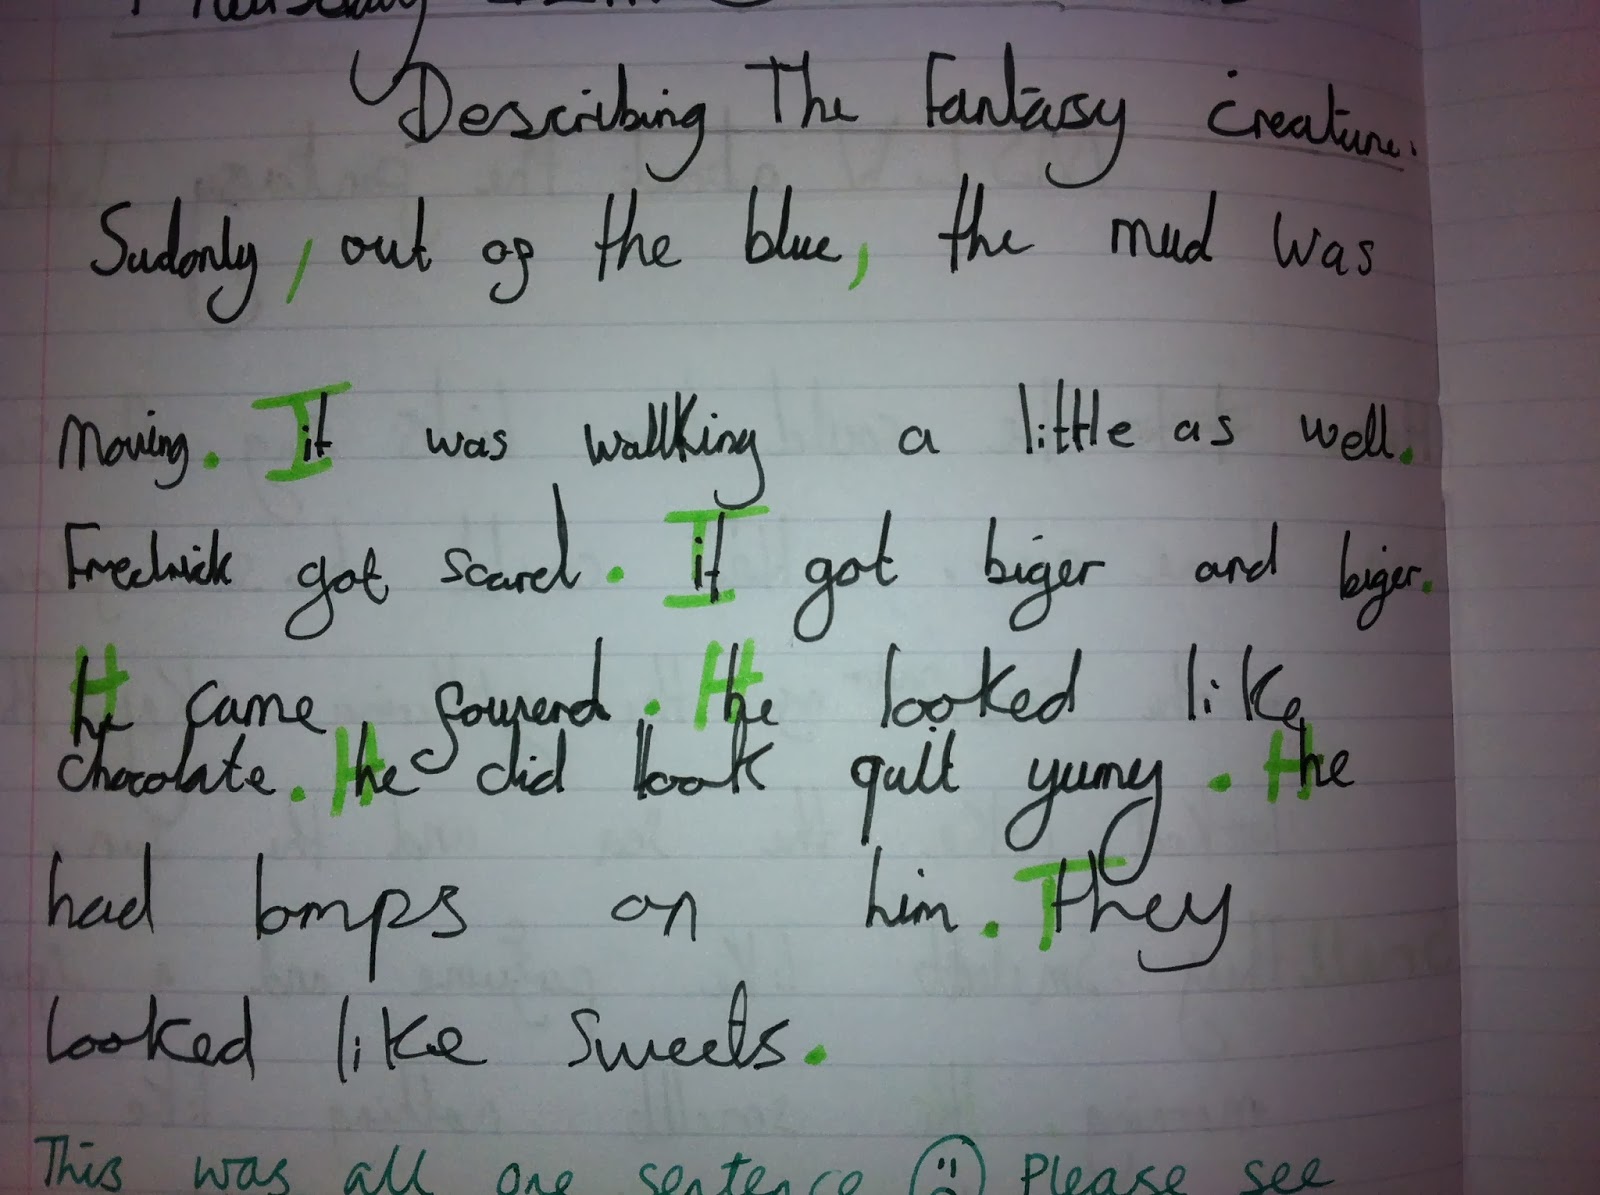 Describing The Fantasy Creature.
Sudonly, out of the blue, the mud was
moving. It was wallking a little as well.
Fredrick got scared. It got biger and biger.
He came fowrerd. He looked like
chocolate. He did look quit yumy. He
had bmps on him. They
looked like sweets.
This was all one sentence ☹ Please see